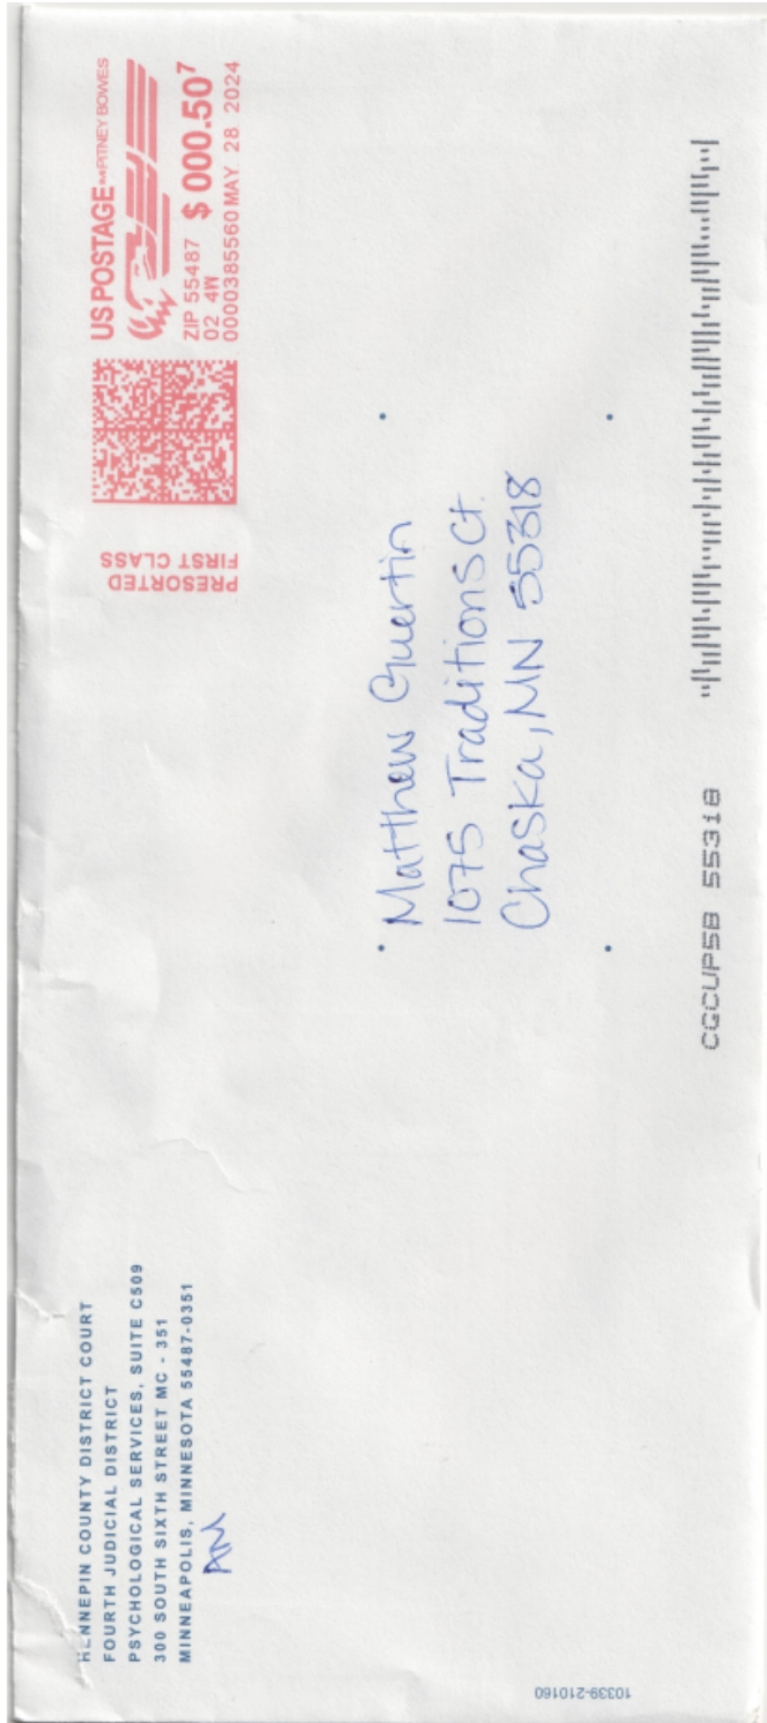 HENNEPIN COUNTY DISTRICT COURT
FOURTH JUDICIAL DISTRICT
PSYCHOLOGICAL SERVICES, SUITE C509
300 SOUTH SIXTH STREET MC - 351
MINNEAPOLIS, MINNESOTA 55487-0351
AM
PRESORTED
FIRST CLASS
US POSTAGE PITNEY BOWES
ZIP 55487 $ 000.50⁷
02 4W
0000385560 MAY. 28 2024
Matthew Guertin
1075 Traditions Ct.
Chaska, MN 55318
CGCUP5B 55318
10339-210160